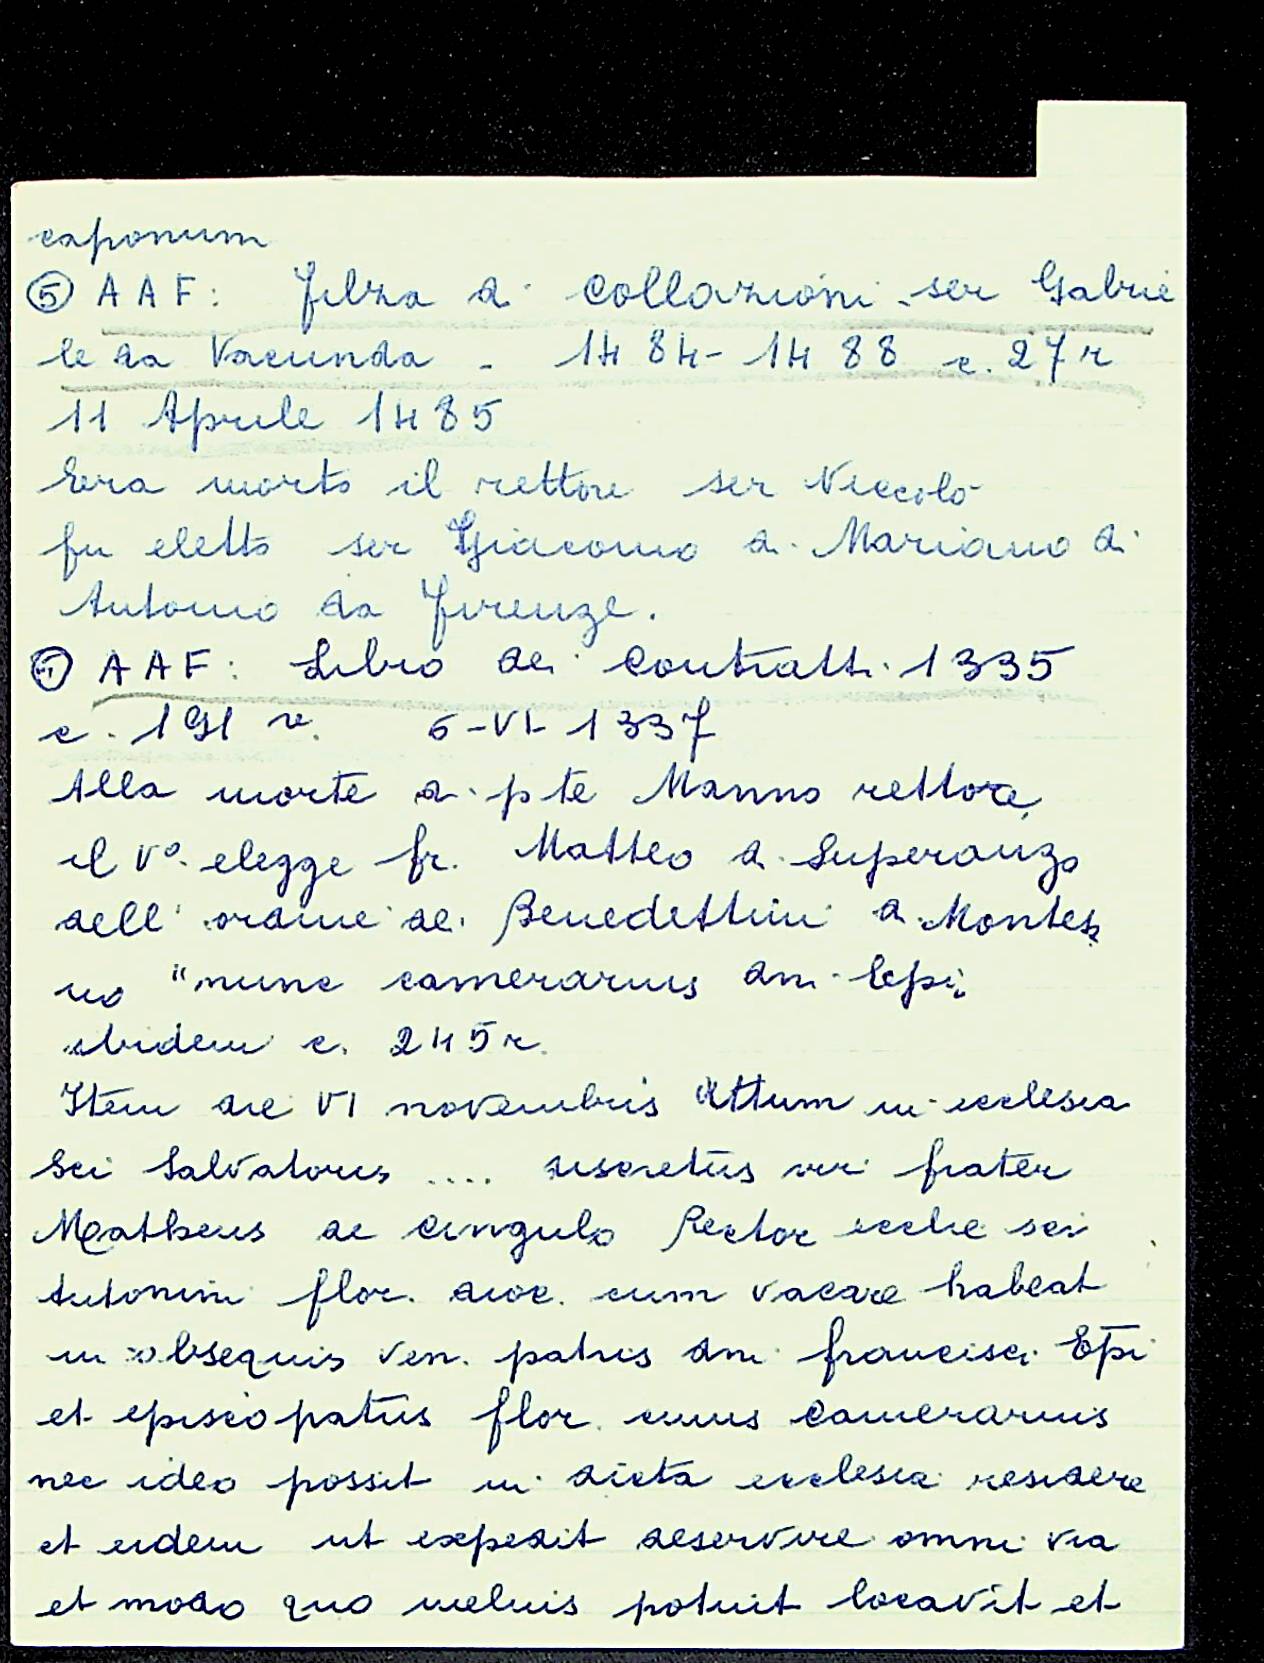 caponum
⑤ AAF: Filza di Collazioni ser Gabrie
le da Vacunda - 1484-1488 c. 27r
11 Aprile 1485
Era morto il rettore ser Niccolò
fu eletto ser Giacomo di Mariano di
Antonio da Firenze.
AAF: Libro dei Contratti 1335
c. 191 v. 6-VI-1337
Alla morte di pte Manno rettore,
il Vº elegge fr. Matteo di Superanzo
dell'ordine dei Benedettini di Montes
no "nunc camerarius dni Epi,
ibidem c. 245r.
Item die VI novembris Attum in ecclesia
Sci Salvatoris .... discretus vir frater
Matheus de Cingulo Rector ecclie sci
Antonini flor. dioc. cum vacare habeat
in obsequis ven. patris dni francisci Epi
et episcopatus flor. cuius Camerarius
nec ideo possit in dicta ecclesia residere
et eidem ut expedit deservire omni via
et modo quo melius potuit locavit et